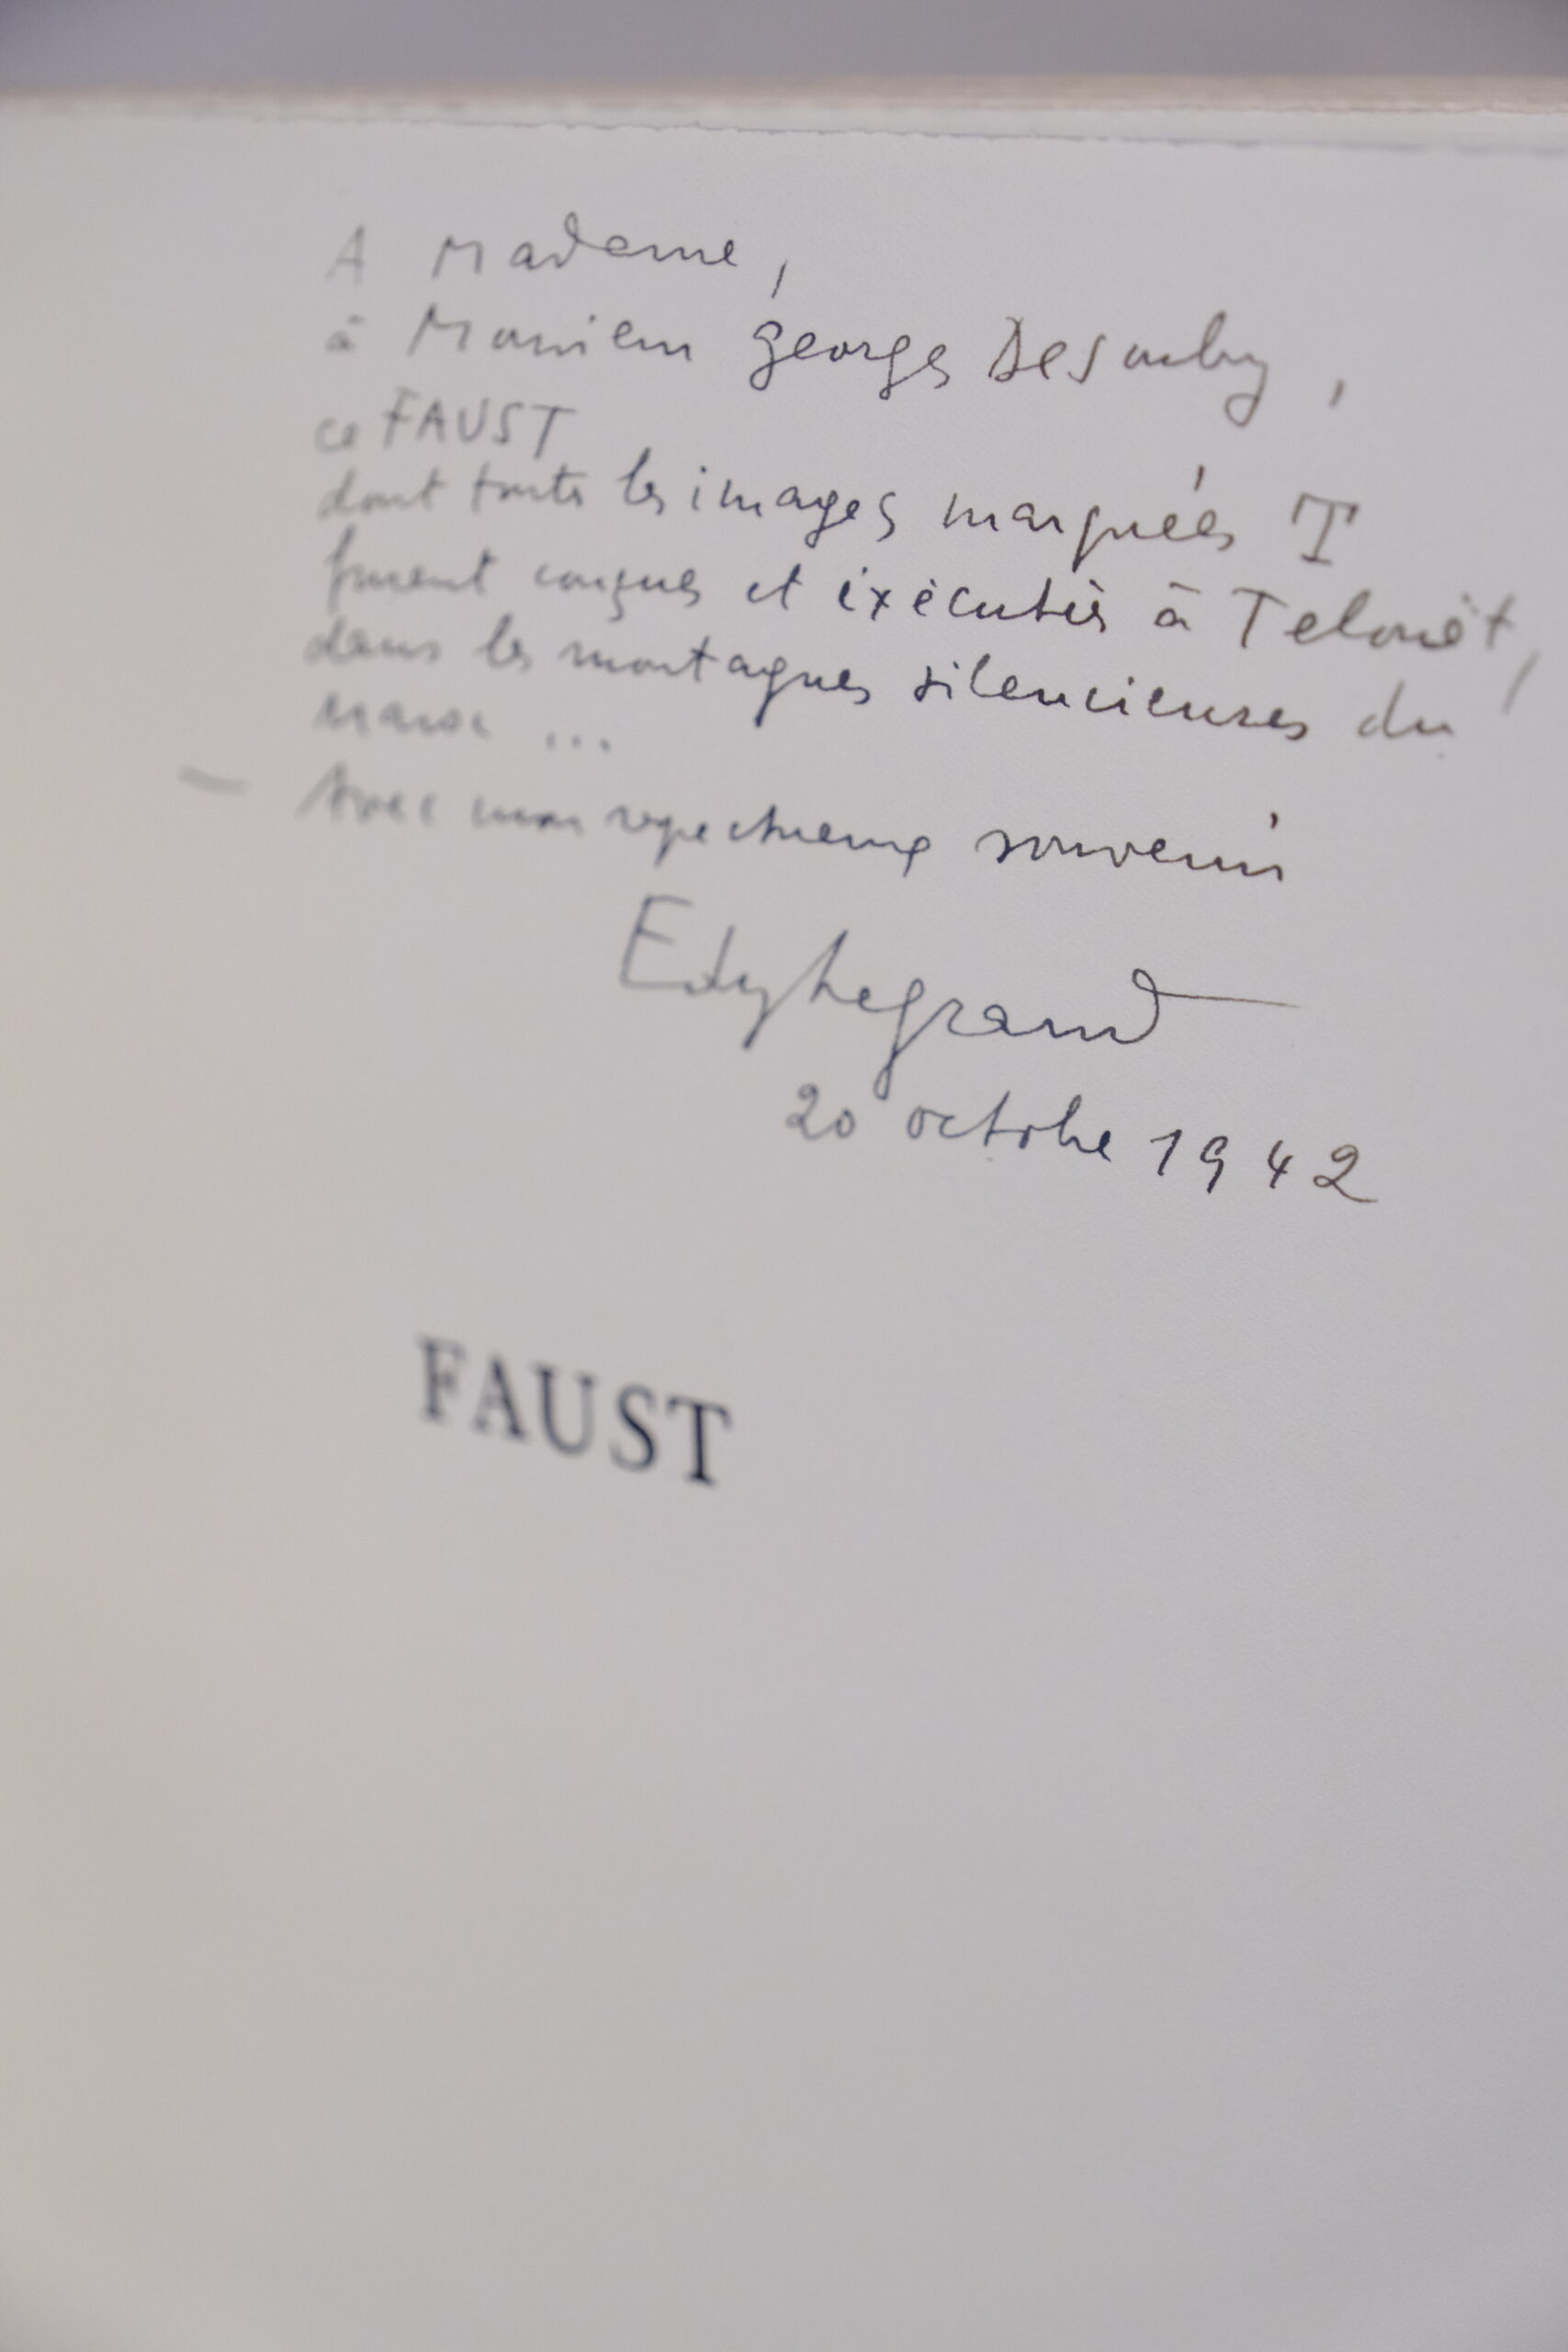 A Madame,
à Monsieur Georges
ce FAUST
dont toutes les images marquées T
furent conçues et exécutées à Telouët,
dans les montagnes silencieuses du
Maroc ...
— Avec mon respectueux souvenir
Edy Legrand
20 octobre 1942
FAUST